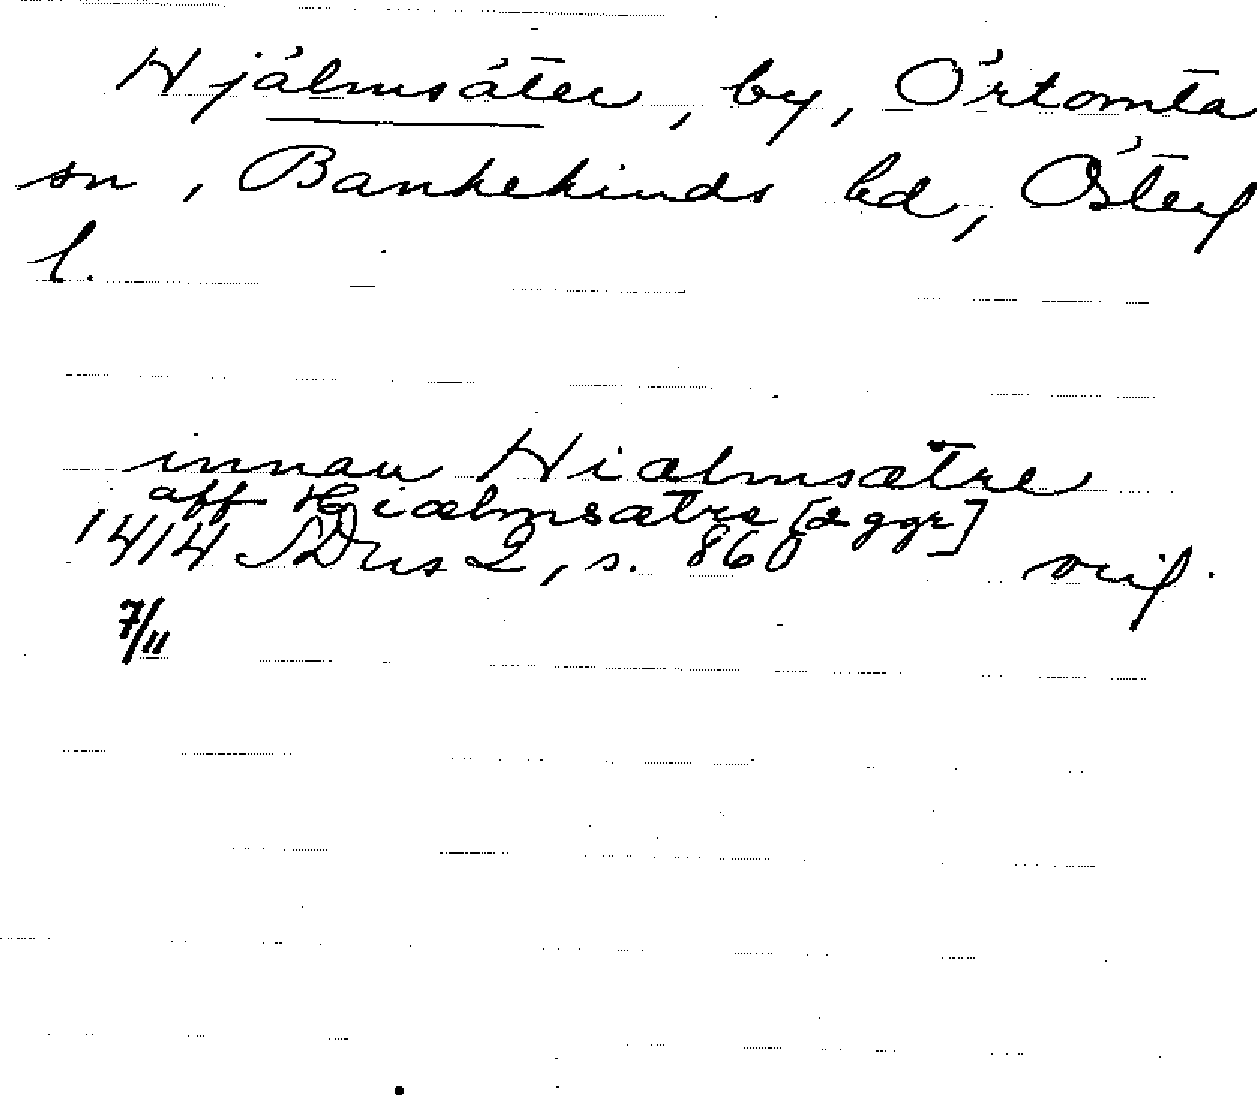 Hjälmsäter, by, Örtomta
sn, Bankekinds hd, Österg
l.
innan Hiælmsætre
aff Hiælmsætre [2 ggr]
1414 SDns 2, s. 860 avs.
7/11